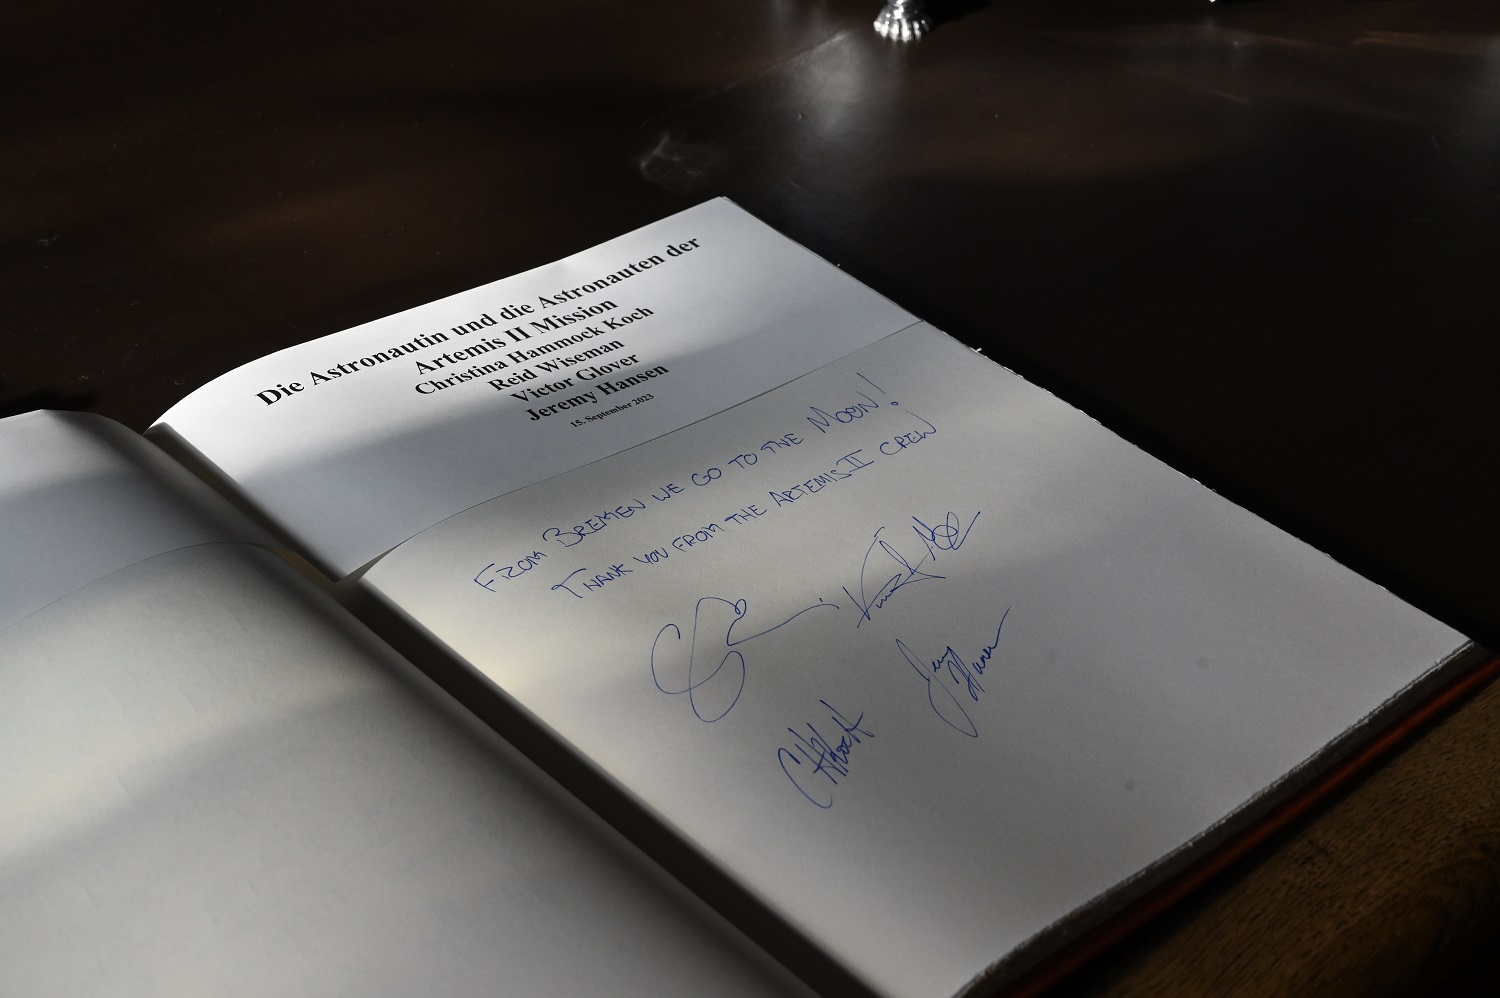 Die Astronautin und die Astronauten der
Artemis II Mission
Christina Hammock Koch
Reid Wiseman
Victor Glover
Jeremy Hansen
15. September 2023
FROM BREMEN WE GO TO THE MOON!
THANK YOU FROM THE ARTEMIS II CREW
Jeremy Hansen
CHKoch